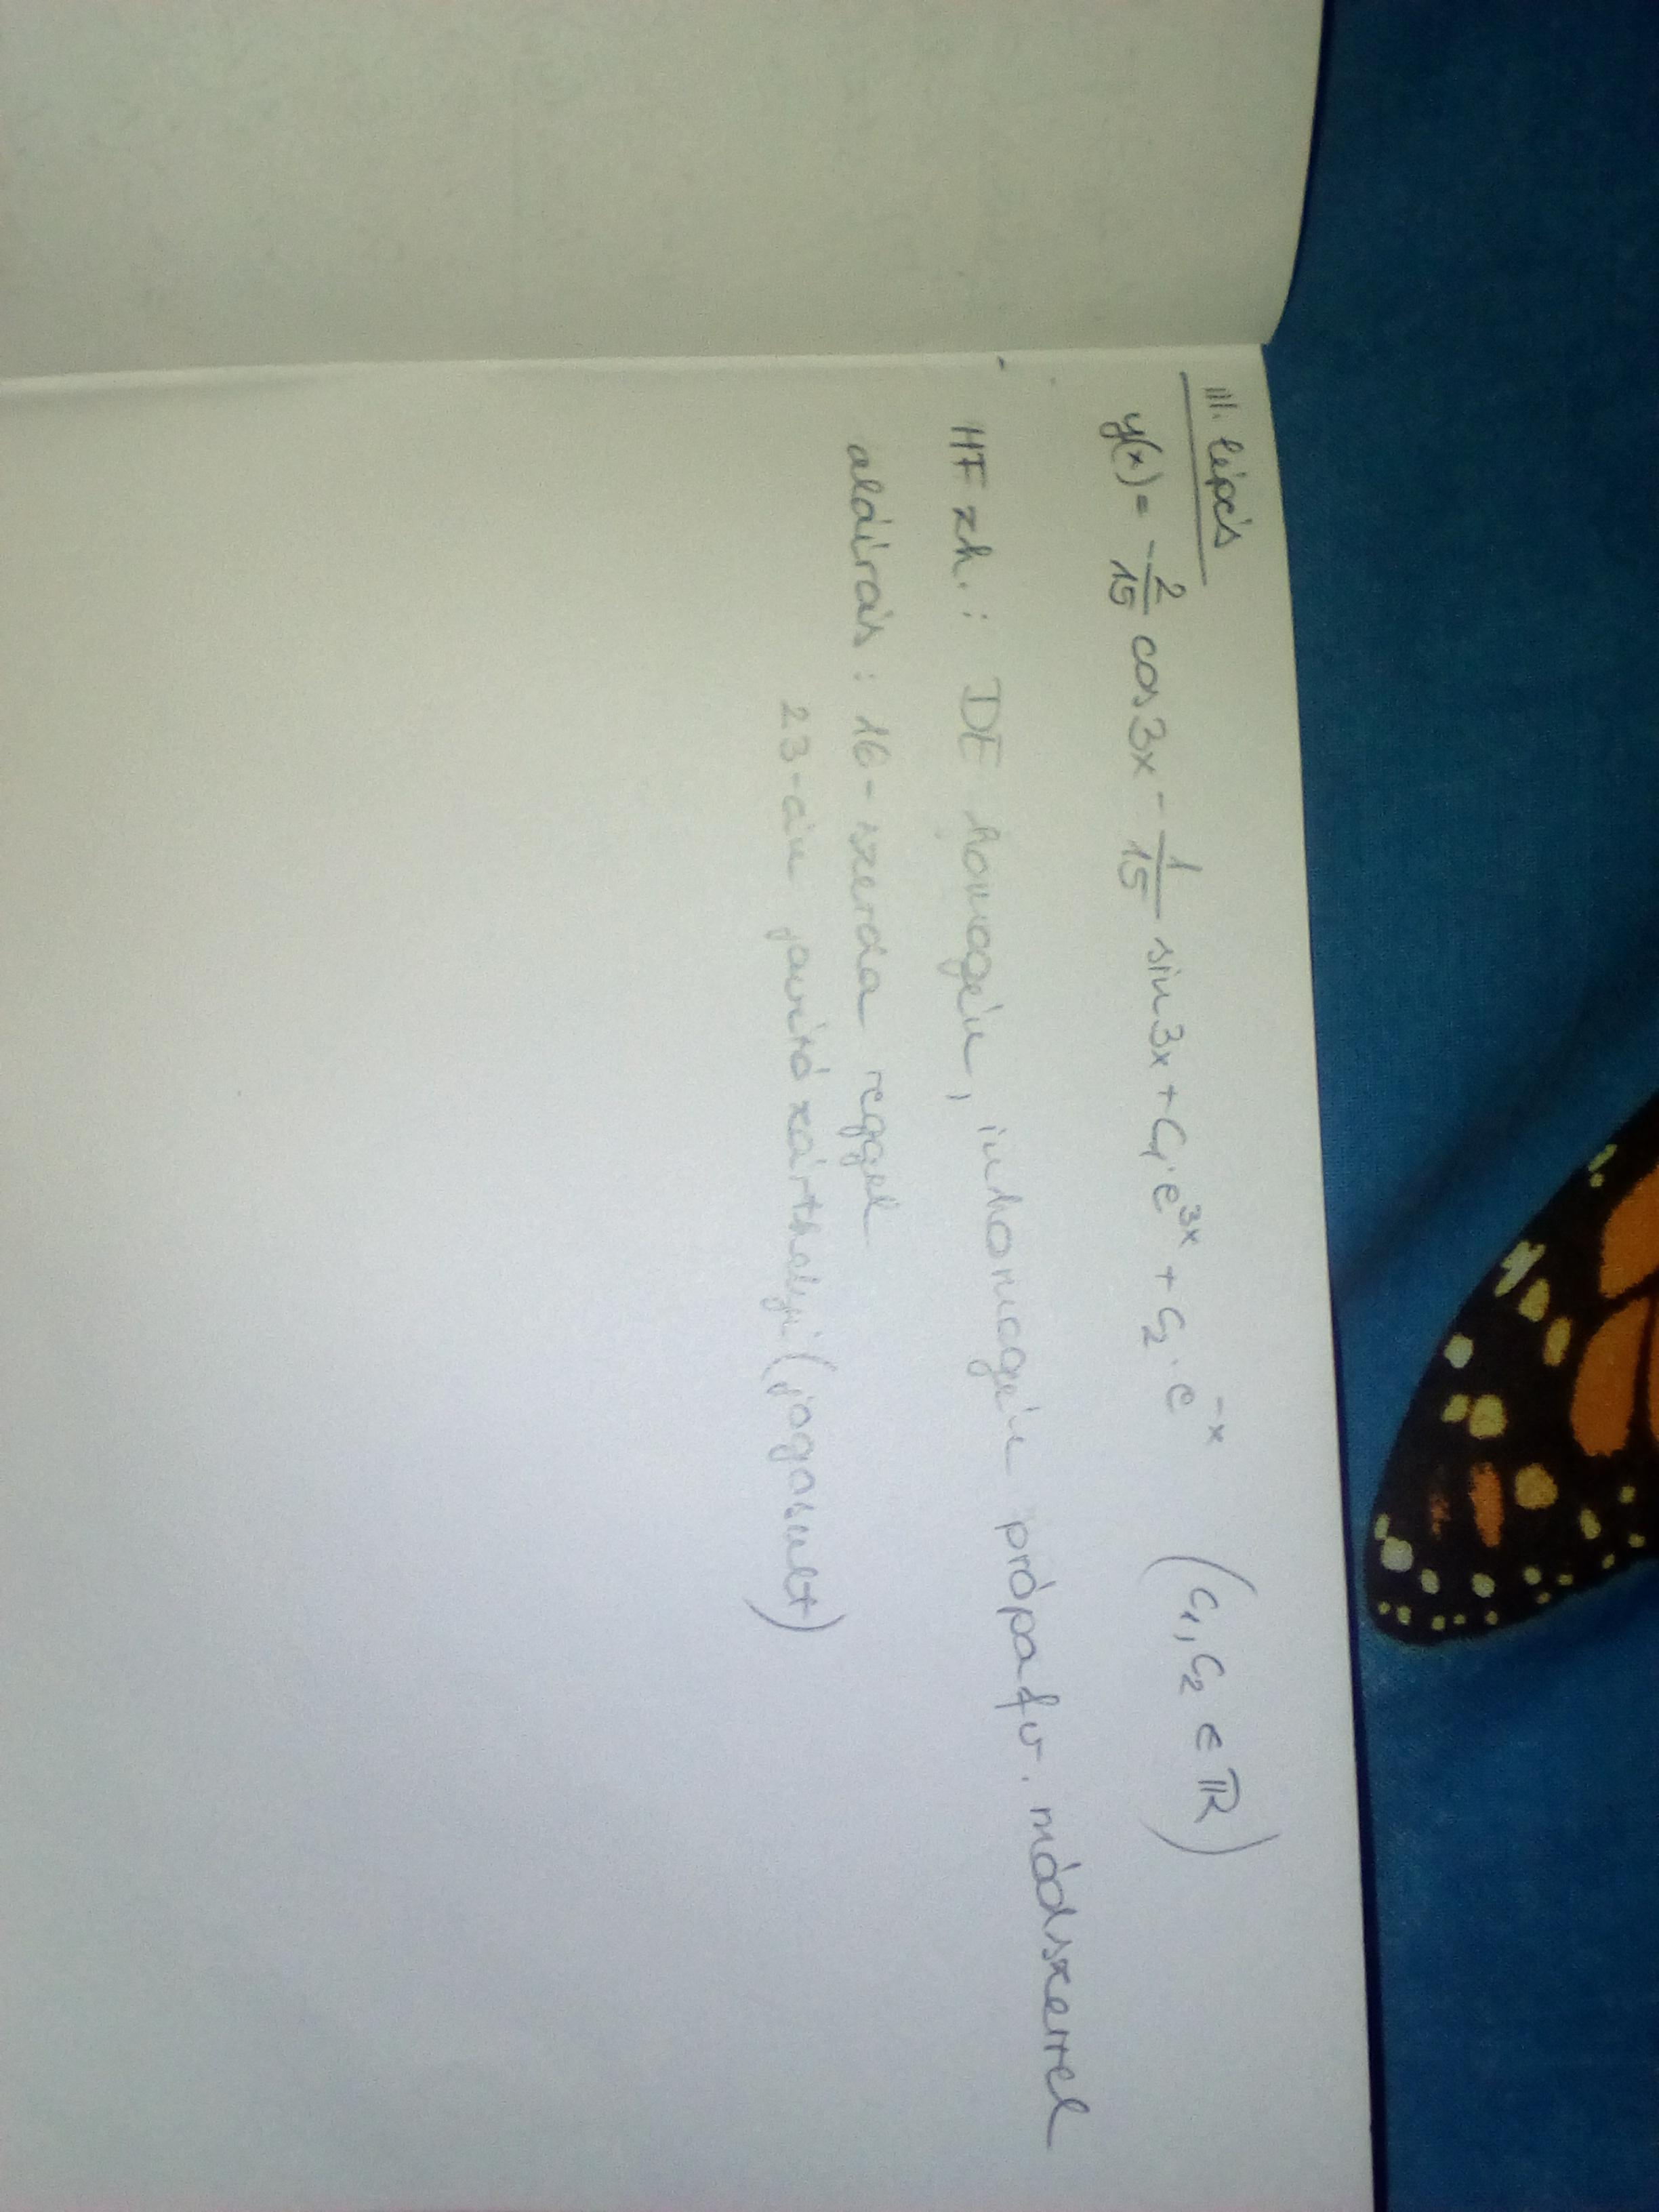 III. lépés
y(x) = -2/15 cos 3x - 1/15 sin 3x + C₁·e^3x + C₂·e^-x (C₁, C₂ ∈ ℝ)
HF zh.: DE homogén, inhomogén própafv. módszerrel
aláírás: 16-szerda reggel
23-án javító zárthelyi (jogosult)